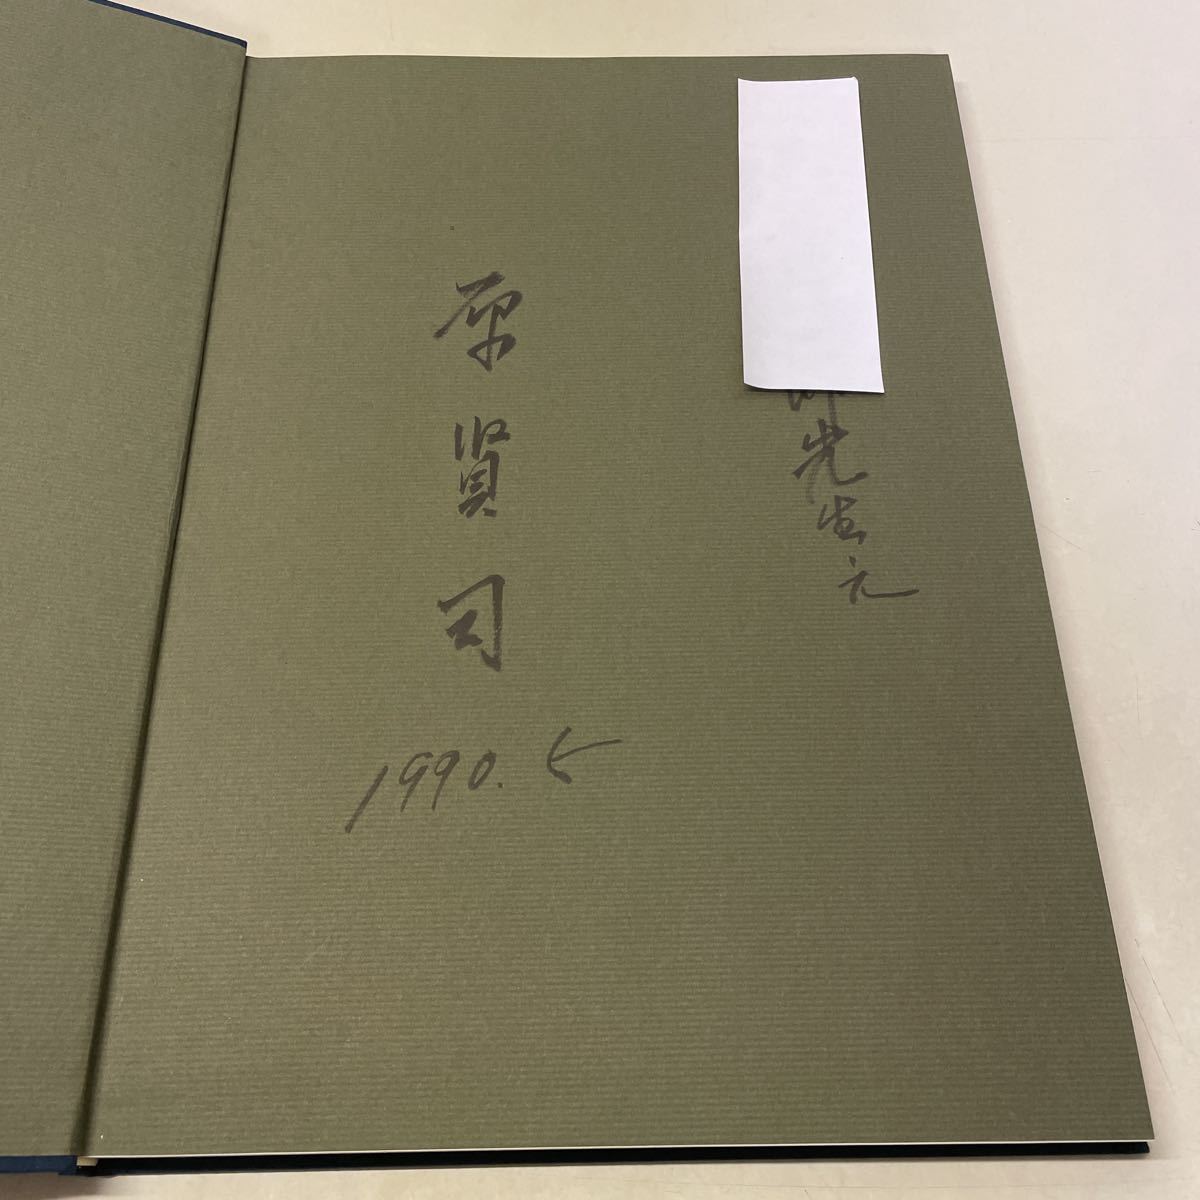 先生え
原賢司
1990.5